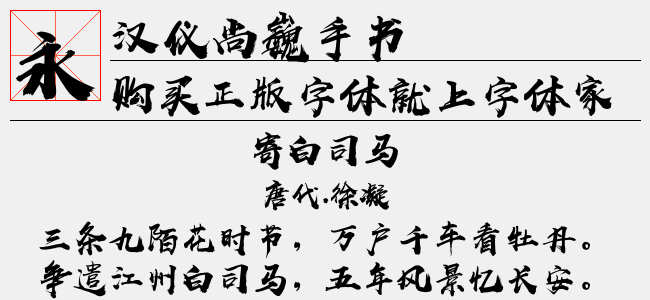 永
汉仪尚巍手书
购买正版字体就上字体家
寄白司马
唐代.徐凝
三条九陌花时节，万户千车看牡丹。
争遣江州白司马，五年风景忆长安。